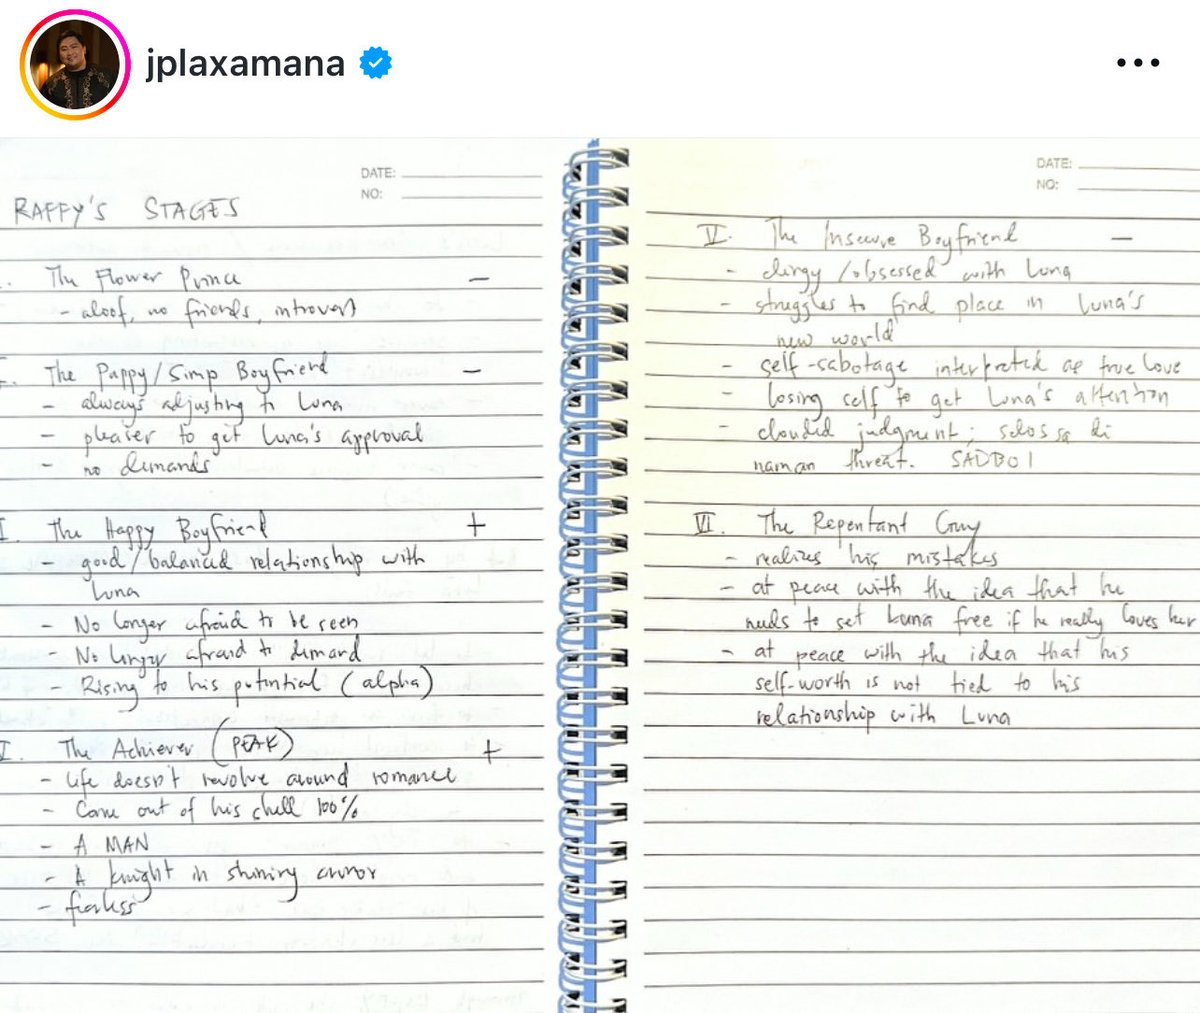 jplaxamana
DATE:
NO:
RAFFY'S STAGES
The Flower Prince –
- aloof, no friends, introvert
The Puppy/Simp Boyfriend –
- always adjusting to Luna
- pleaser to get Luna's approval
- no demands
The Happy Boyfriend +
- good/balanced relationship with
Luna
- No longer afraid to be seen
- No longer afraid to demand
- Rising to his potential (alpha)
The Achiever (PEAK) +
- life doesn't revolve around romance
- Come out of his shell 100%
- A MAN
- A knight in shining armor
- fearless
DATE:
NO:
V. The Insecure Boyfriend –
- clingy/obsessed with Luna
- struggles to find place in Luna's
new world
- self-sabotage interpreted as true love
- losing self to get Luna's attention
- clouded judgment; selos sa di
naman threat. SADBOI
VI. The Repentant Guy
- realizes his mistakes
- at peace with the idea that he
needs to set Luna free if he really loves her
- at peace with the idea that his
self-worth is not tied to his
relationship with Luna